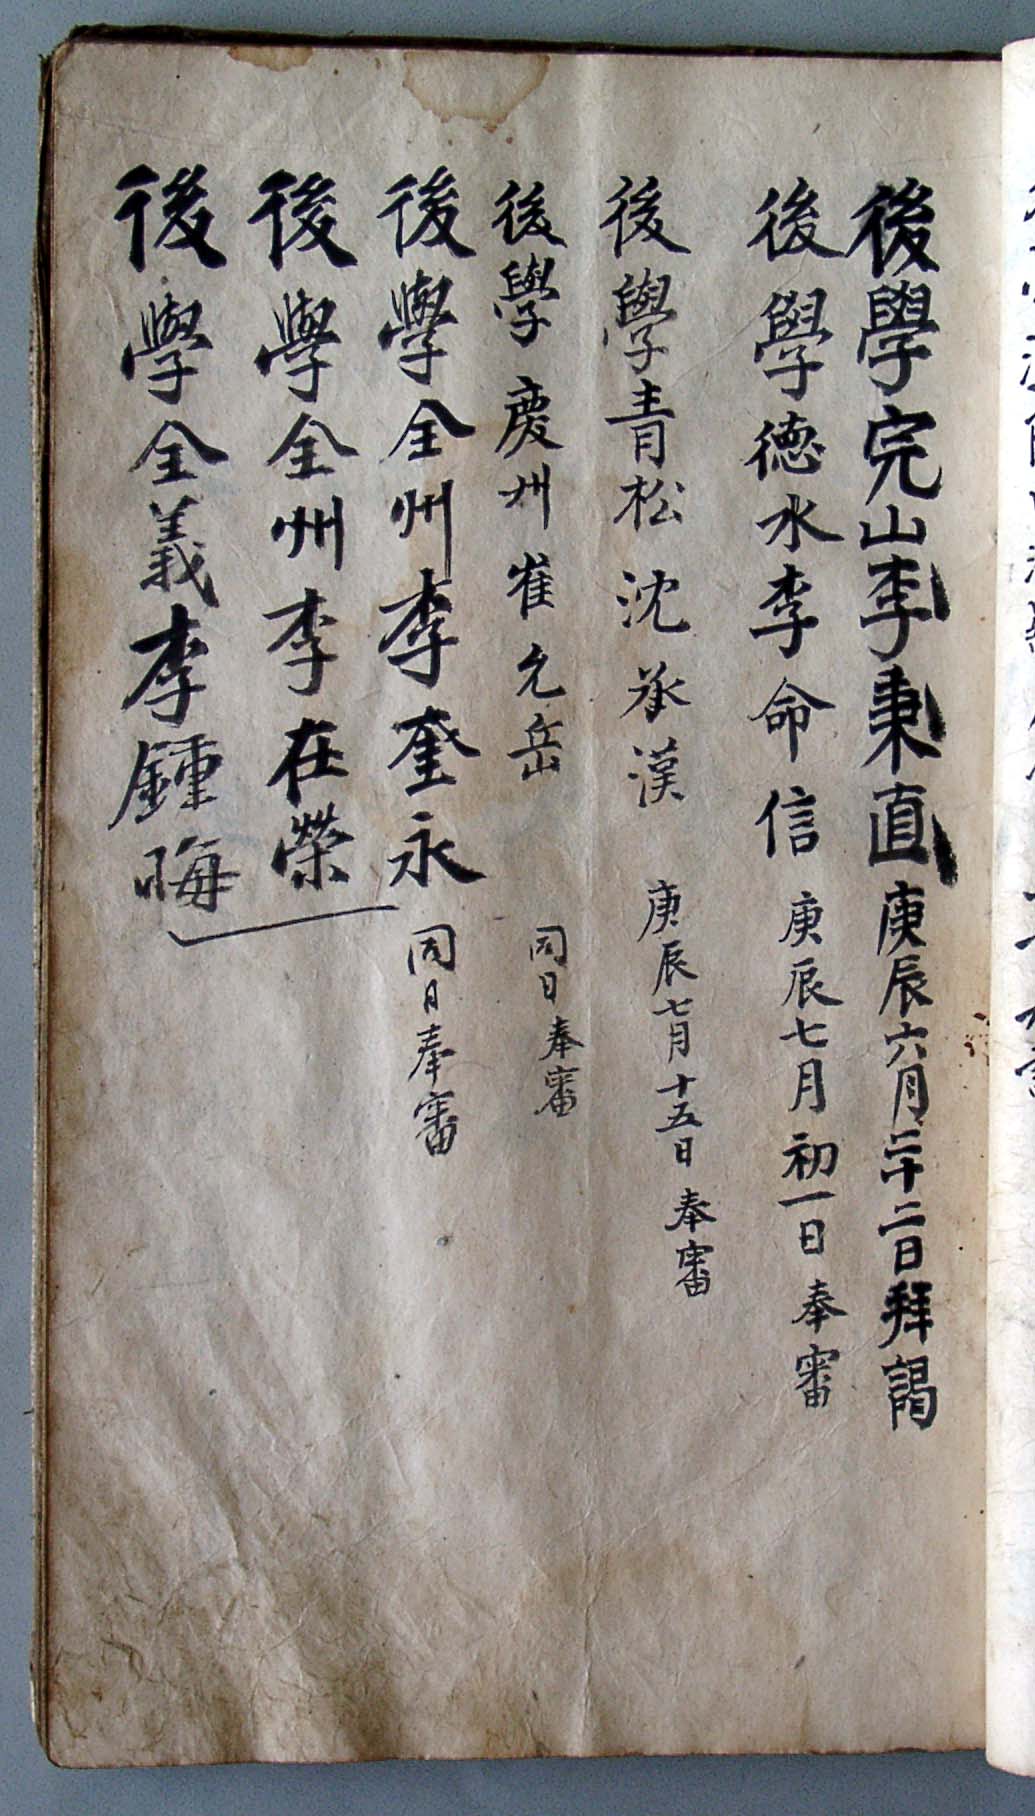 後學完山李秉直庚辰六月二十二日拜謁
後學德水李命信庚辰七月初一日奉審
後學青松沈承漢庚辰七月十五日奉審
後學慶州崔允岳同日奉審
後學全州李奎永同月奉審
後學全州李在榮
後學全義李鍾晦